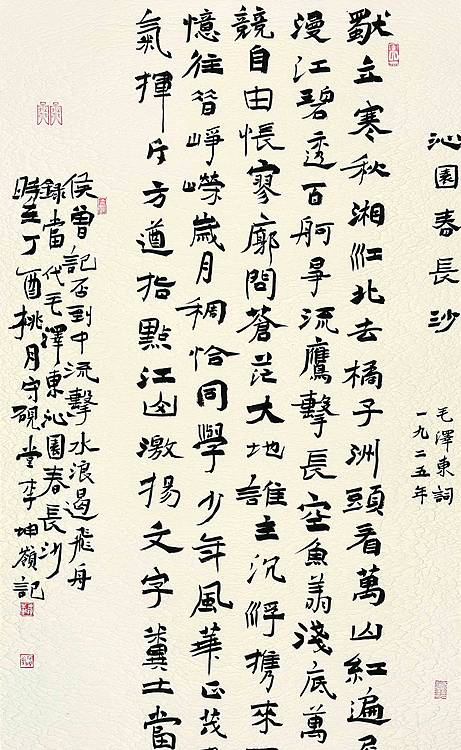 沁園春長沙
毛澤東詞
一九二五年
獨立寒秋湘江北去橘子洲頭看萬山紅遍
漫江碧透百舸爭流鷹擊長空魚翔淺底萬
競自由悵寥廓問蒼茫大地誰主沉浮攜來
憶往昔崢嶸歲月稠恰同學少年風華正茂
氣揮斥方遒指點江山激揚文字糞土當
侯曾記否到中流擊水浪遏飛舟
錄當代毛澤東沁園春長沙
時在丁酉桃月守硯堂李坤嶺記